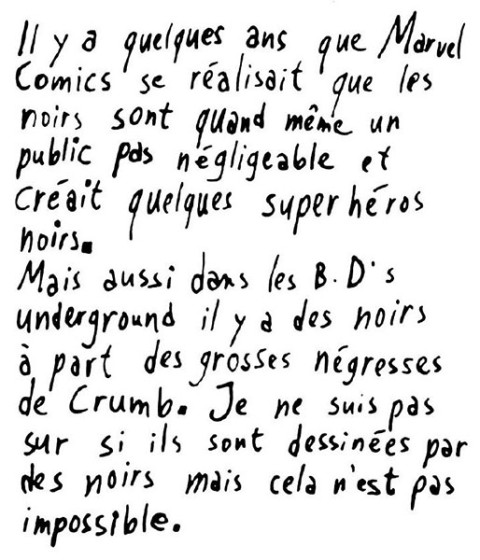 Il y a quelques ans que Marvel
Comics se réalisait que les
noirs sont quand même un
public pas négligeable et
créait quelques super héros
noirs.
Mais aussi dans les B.D's
underground il y a des noirs
à part des grosses négresses
de Crumb. Je ne suis pas
sur si ils sont dessinées par
des noirs mais cela n'est pas
impossible.